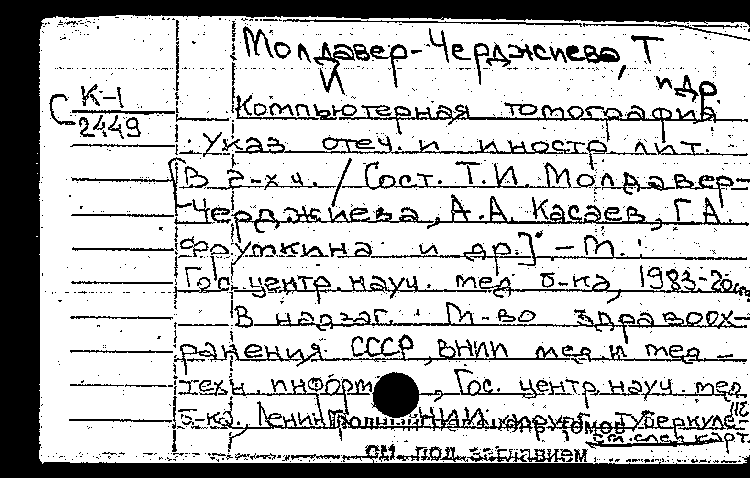 Молдавер-Черджиева, Т
И
и др
С К-1
2449
Компьютерная томография
. Указ отеч. и иностр лит.
[В 2-х ч. / Сост. Т.И. Молдавер-
Черджиева, А.А. Касаев, Г.А.
Фруткина и др.]. - М. :
Гос. центр. науч. мед б-ка, 1983-
В надзаг. : М-во здравоох-
ранения СССР, ВНИИ мед и мед -
техн. информ , Гос. центр. науч. мед
б-ка, НИИ хирург. туберкуле-
томов
см. под заглавием